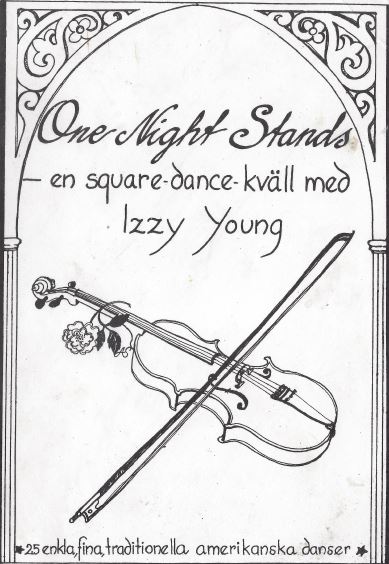 One Night Stands
– en square-dance-kväll med
Izzy Young
★25 enkla, fina, traditionella amerikanska danser★